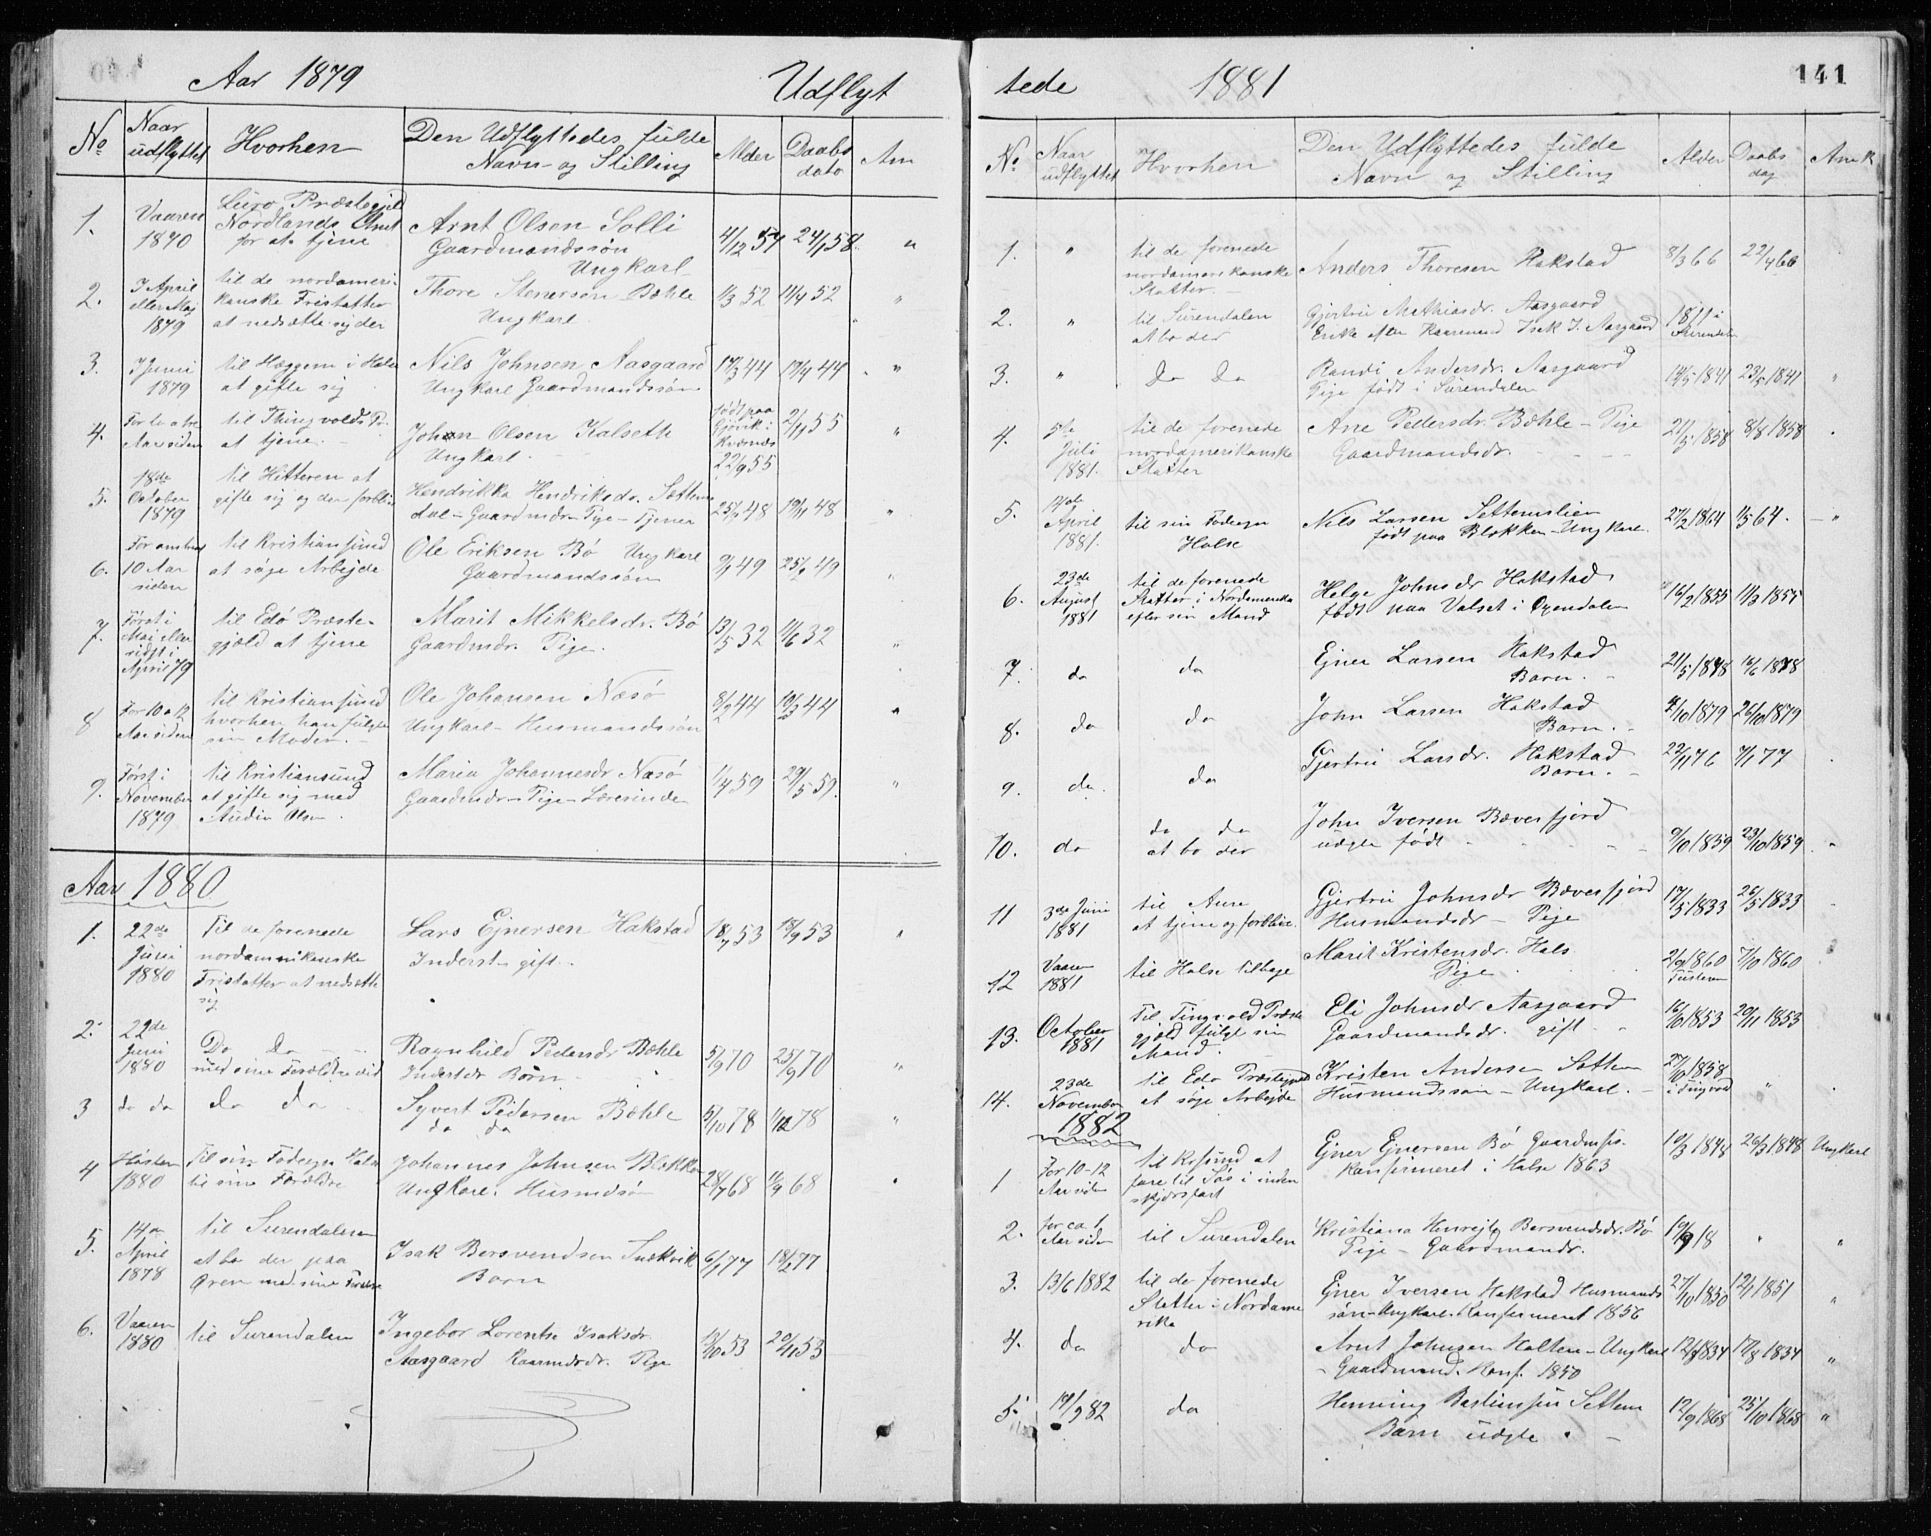 Aar 1879 Udflyt
No Naar udflyttet Hvorhen Den Udflyttedes fulde Navn og Stilling Alder Daabs dato Am
1. Vaaren 1870 Luro Præstegjeld Nordlands Amt for at tjene Arnt Olsen Solli Gaardmandssøn Ungkarl 4/12 57 24/1 58 "
2. I April eller Maj 1879 til de nordameri- kanske Fristatter at nedsætte sig der Thore Stenersen Bæhle Ungkarl 1/3 52 11/4 52 "
3. I Juni 1879 til Hæggem i Halse at gifte sig Nils Johnsen Aasgaard Ungkarl Gaardmandssøn 17/3 44 17/4 44 "
4. For to a tre Aar siden til Thingvolds Pr. at tjene Johan Olsen Kalseth Ungkarl født paa Gjøvik i Kvernæs 22/9 55 2/11 55 "
5. 18de October 1879 til Hitteren at gifte sig og der forbli Hendrikka Hendriksdr. Settem dal - Gaardmdr. Pige - Tjener 25/7 48 19/11 48 "
6. For omtrent 10 Aar siden til Kristiansund at søge Arbejde Ole Eriksen Bø Ungkarl Gaardmandssøn 9/1 49 25/2 49 "
7. Først i Mai eller sidst i April 79 til Edø Præste- gjæld at tjene Marit Mikkelsdr. Bø Gaardmdr. Pige. 13/5 32 11/6 32 "
8 For 10 a 12 Aar siden til Kristiansund hvorhen han fulgte sin Moder. Ole Johansen Næsø Ungkarl - Husmandssøn 8/2 44 10/3 44 "
9. Først i November 1879 til Kristiansund at gifte sig med Audin Olsen. Maria Johannesdr Næsø Gaardmdr. - Pige - Lærerinde 1/4 59 29/5 59. "
Aar 1880
1. 22de Juni 1880 Til de forenede nordamerikanske Fristatter at nedsætte sig Lars Ejnersen Hakstad Inderst - gift 18/7 53 18/9 53 "
2. 22de Juni 1880 Do Do med sine Forældre did Ragnhild Pedersdr Bæhle Inderstdr Børn 5/9 70 25/9 70 "
3 do do do do Syvert Pedersen Bæhle do do 5/10 78 1/12 78 "
4 Høsten 1880 Til sin Fødeegn Halse til sine Forældre Johannes Johnsen Blekken Ungkarl. Husmdsøn 28/7 68 1/9 68
5. 14de April 1878 til Surendalen at bo der paa Øren med sine Forældre Isak Bersvendsen Snekvik Barn 6/1 77 18/2 77
6. Vaaren 1880 til Surendalen Ingebor Lorentse Isaksdr. Aasgaard Kaarmdsdr. Pige 13/10 53 20/11 53
tede 1881 141
No Naar udflyttet Hvorhen Den Udflyttedes fulde Navn og Stilling Alder Daabs dag Anmk
1. " til de forenede nordamerikanske Statter. Anders Thoresen Hakstad 8/3 66 22/4 66
2. " til Surendalen at bo der Gjertru Mathiasdr. Aasgaard Enke efter Kaarmand Isak I. Aasgaard 1811 i Surendalen
3. " Do Do Randi Andersdr. Aasgaard Pige født i Surendalen 14/5 1841 23/5 1841 "
4. 5te Juli 1881. til de forenede nordamerikanske Statter Ane Pedersdr. Bæhle - Pige Gaardmandsdr. 21/5 1858 8/8 1858
5. 14de April 1881. til sin Fødeegn Halse Nils Larsen Settemslien født paa Blekken - Ungkarl 27/2 1864 1/5 64. "
6. 23de August 1881 til de forenede Statter i Nordamerika efter sin Mand Helge Johnsdr Hakstad født paa Valset i Øxendalen 16/2 1855 11/3 1855
7. do do Ejner Larsen Hakstad Barn. 21/5 1878 16/6 1878
8. do do John Larsen Hakstad Barn. 4/10 1879 26/10 1879
9. do. do Gjertru Larsdr. Hakstad Barn. 22/11 76 7/1 77
10. do do do at bo der John Iversen Bæverfjord uægte født 9/10 1859 23/10 1859
11 3de Juni 1881 til Aure at tjene og forblive Gjertru Johnsdr Bæverfjord Husmandsdr - Pige 17/5 1833 26/5 1833
12 Vaaren 1881 til Halse tilbage Marit Kristensdr. Hals Pige 2/9 1860 Tusteren 7/10 1860
13. October 1881 Til Tingvold Præste gjeld fulgt sin Mand. Eli Johnsdr Aasgaard Gaardmandsdr. gift 16/10 1853 20/11 1853
14. 23de November til Edø Præstegjeld at søge Arbejde Kristen Andersen Settem Husmandssøn - Ungkarl. 27/10 1858 i Tingvold "
1882
1 For 10-12 Aar siden til Krsund at fare til Søs i inden skjærsfart Ejner Ejnersen Bø Gaardmss. konfirmeret i Halse 1863 10/3 1848 26/3 1848 Ungkarl
2. for ca 1 Aar siden til Surendalen Kristiana Bersvendsdr. Bø Pige - Gaardmandr. 10/9 18 " "
3. 13/6 1882 til de forenede Statter i Nordame rika Ejner Iversen Hakstad Husmands søn - Ungkarl. Konfirmeret 1856 27/10 1850 12/1 1851 "
4. do do Arnt Johnsen Holten - Ungkarl - Gaardmand. Konf. 1850 12/8 1834 17/8 1834 "
5. 19/9 82 do Henning Bastiansen Settem Barn uægte 12/9 1868 25/10 1868 "